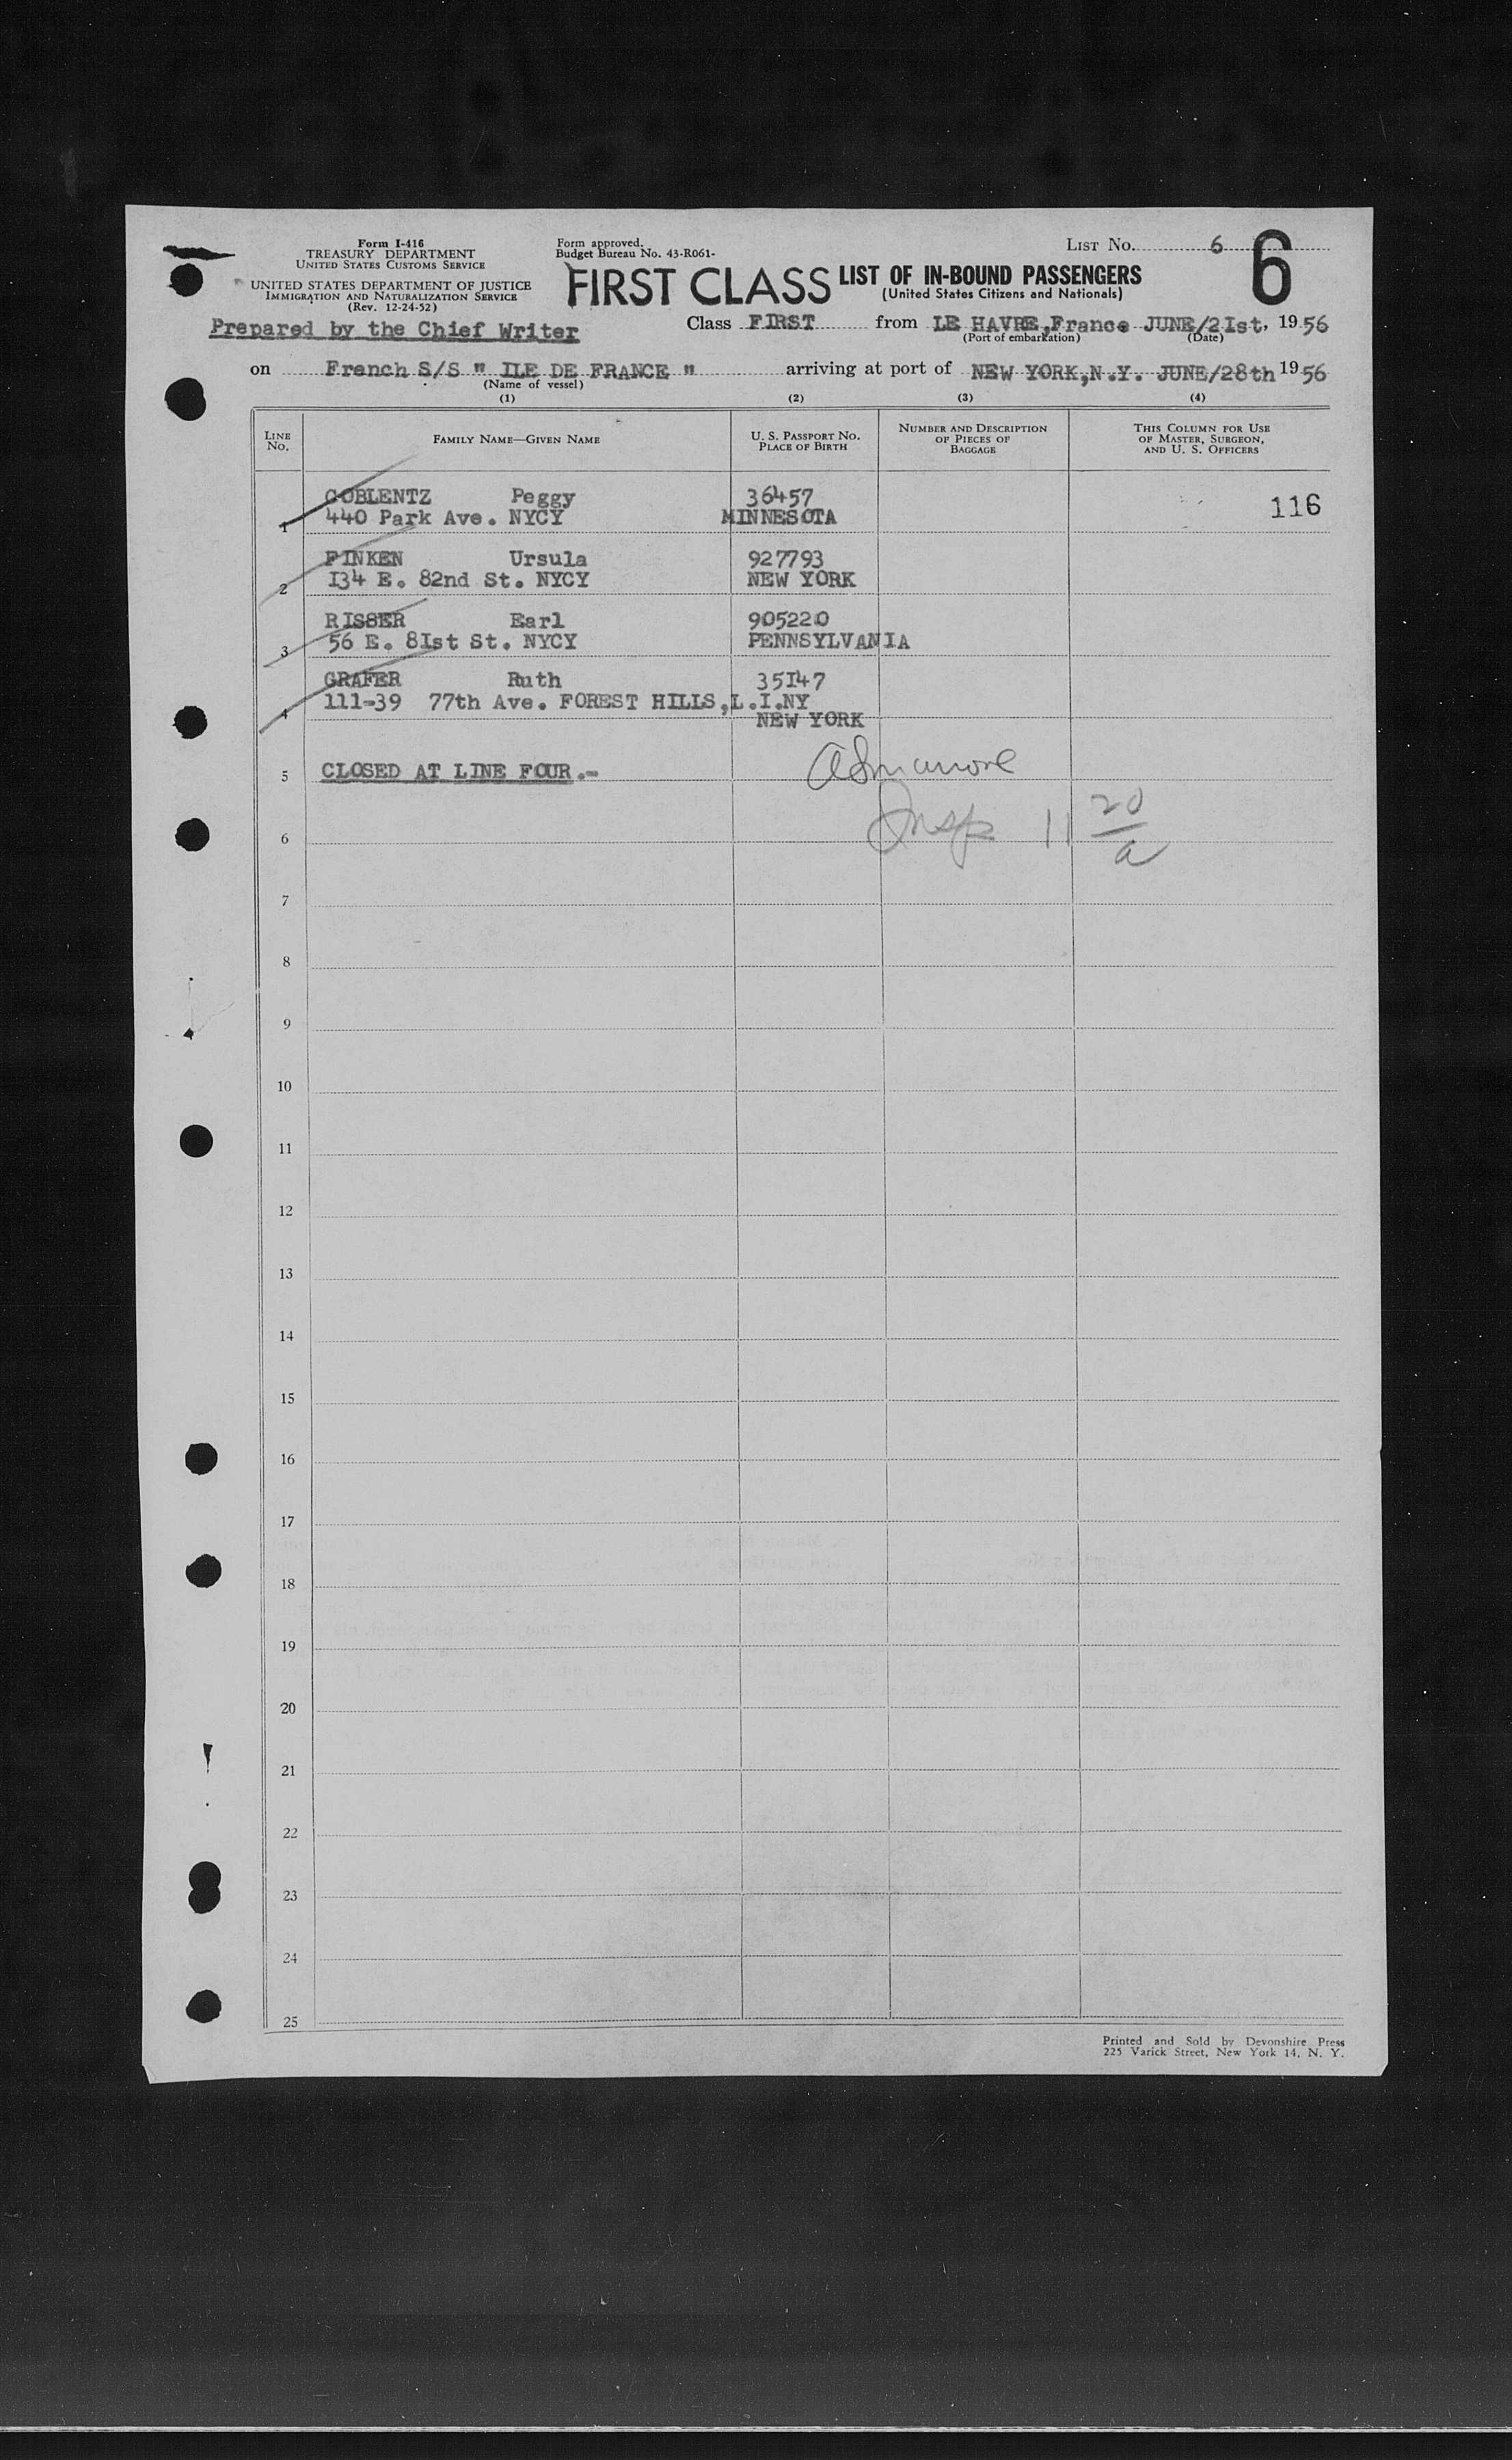 Form I-416
TREASURY DEPARTMENT
UNITED STATES CUSTOMS SERVICE
UNITED STATES DEPARTMENT OF JUSTICE
IMMIGRATION AND NATURALIZATION SERVICE
(Rev. 12-24-52)
Prepared by the Chief Writer
Form approved.
Budget Bureau No. 43-R061-
LIST No. 6
6
FIRST CLASS LIST OF IN-BOUND PASSENGERS
(United States Citizens and Nationals)
Class FIRST from LE HAVRE,France JUNE/2Ist, 1956
(Port of embarkation) (Date)
on French S/S " ILE DE FRANCE " arriving at port of NEW YORK,N.Y. JUNE/28th 1956
(Name of vessel)
(1) (2) (3) (4)
LINE No. FAMILY NAME—GIVEN NAME U. S. PASSPORT NO. PLACE OF BIRTH NUMBER AND DESCRIPTION OF PIECES OF BAGGAGE THIS COLUMN FOR USE OF MASTER, SURGEON, AND U. S. OFFICERS
COBLENTZ Peggy 36457
1 440 Park Ave. NYCY MINNESOTA 116
FINKEN Ursula 927793
2 I34 E. 82nd St. NYCY NEW YORK
RISSER Earl 905220
3 56 E. 8Ist St. NYCY PENNSYLVANIA
GRAFER Ruth 35I47
4 111-39 77th Ave. FOREST HILLS,L.I.NY
NEW YORK
5 CLOSED AT LINE FOUR.-
6 Insp 11 20/a
7
8
9
10
11
12
13
14
15
16
17
18
19
20
21
22
23
24
25
Printed and Sold by Devonshire Press
225 Varick Street, New York 14, N. Y.